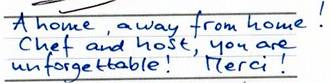 A home, away from home!
Chef and host, you are
unforgettable! Merci!